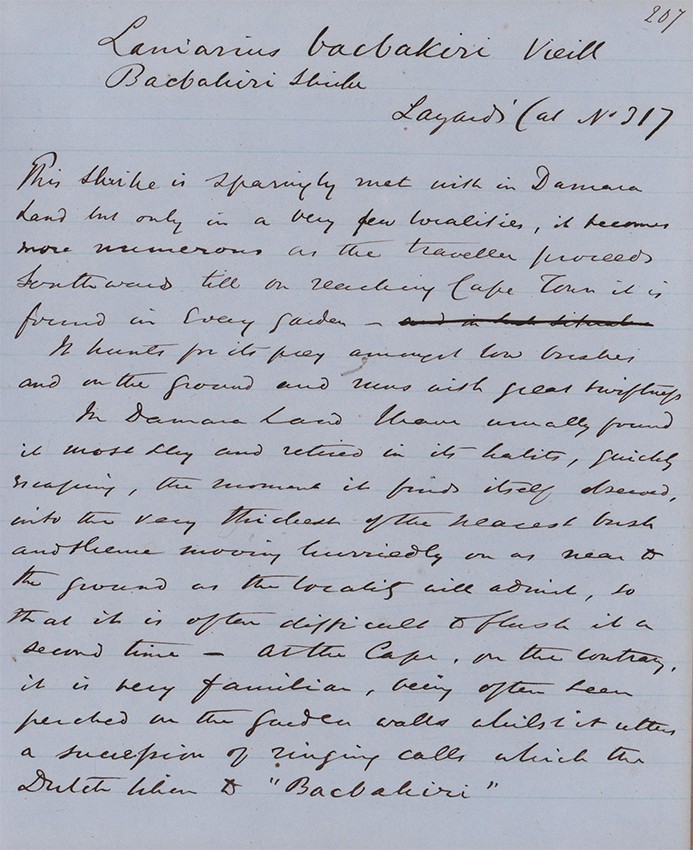 207
Laniarius bacbakiri Vieill
Bacbakiri Shrike
Layard's Cat No 317
This Shrike is sparingly met with in Damara
Land but only in a very few localities, it becomes
more numerous as the traveller proceeds
Southward till on reaching Cape Town it is
found in every garden – and in
It hunts for its prey amongst low bushes
and on the ground and runs with great swiftness
In Damara Land I have usually found
it most shy and retired in its habits, quickly
escaping, the moment it finds itself observed,
into the very thickest of the nearest bush
and thence moving hurriedly on as near to
the ground as the locality will admit, so
that it is often difficult to flush it a
second time – At the Cape, on the contrary,
it is very familiar, being often seen
perched on the garden walls whilst it utters
a succession of ringing calls which the
Dutch liken to "Bacbakiri"